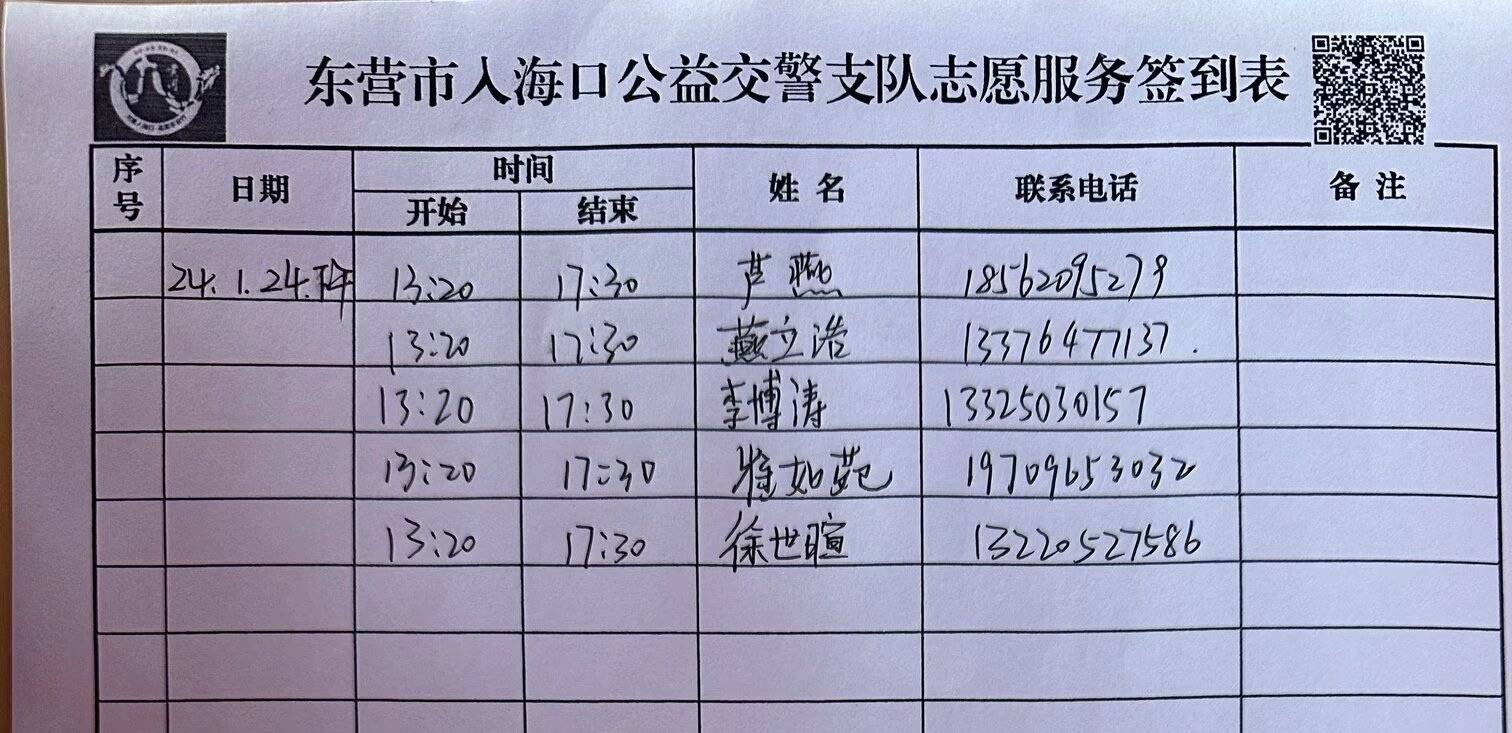 东营市入海口公益交警支队志愿服务签到表
序号 日期 时间 姓名 联系电话 备注
开始 结束
24.1.24.下午 13:20 17:30 芦燕 18562095279
13:20 17:30 燕立浩 13376477137.
13:20 17:30 李博涛 13325030157
13:20 17:30 如苑 19709653032
13:20 17:30 徐世暄 13220527586